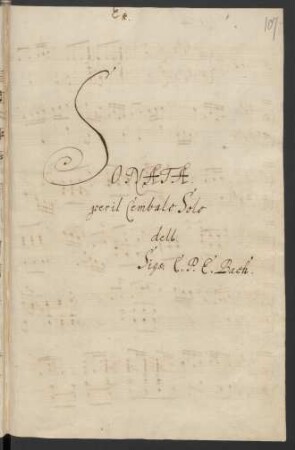 107
SONATA
per il Cembalo Solo
dell
Sigr. C. P. E. Bach.